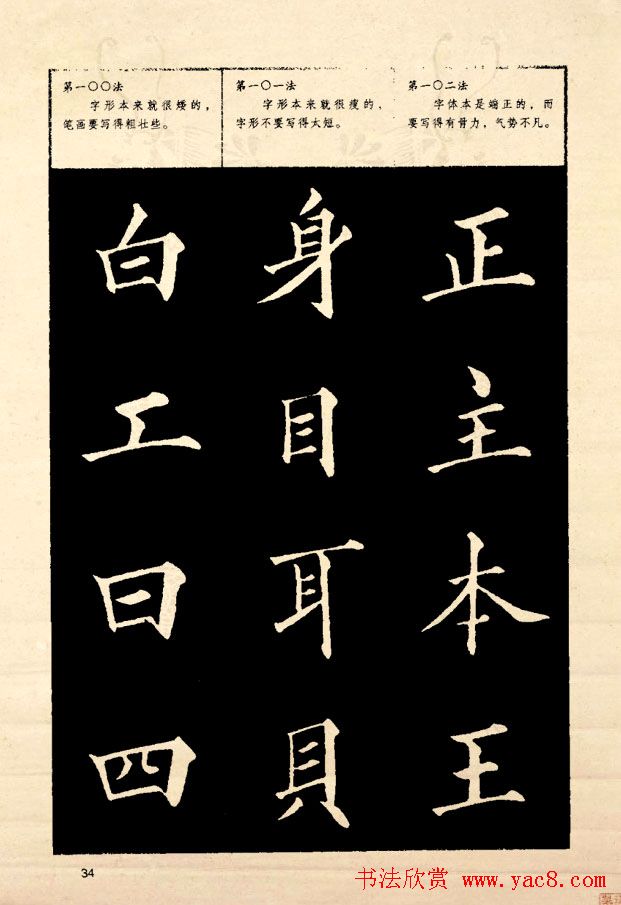 第一〇〇法
字形本来就很矮的，
笔画要写得粗壮些。
第一〇一法
字形本来就很瘦的，
字形不要写得太短。
第一〇二法
字体本是端正的，而
要写得有骨力，气势不凡。
白 身 正
工 目 主
曰 耳 本
四 貝 王
34
书法欣赏 www.yac8.com